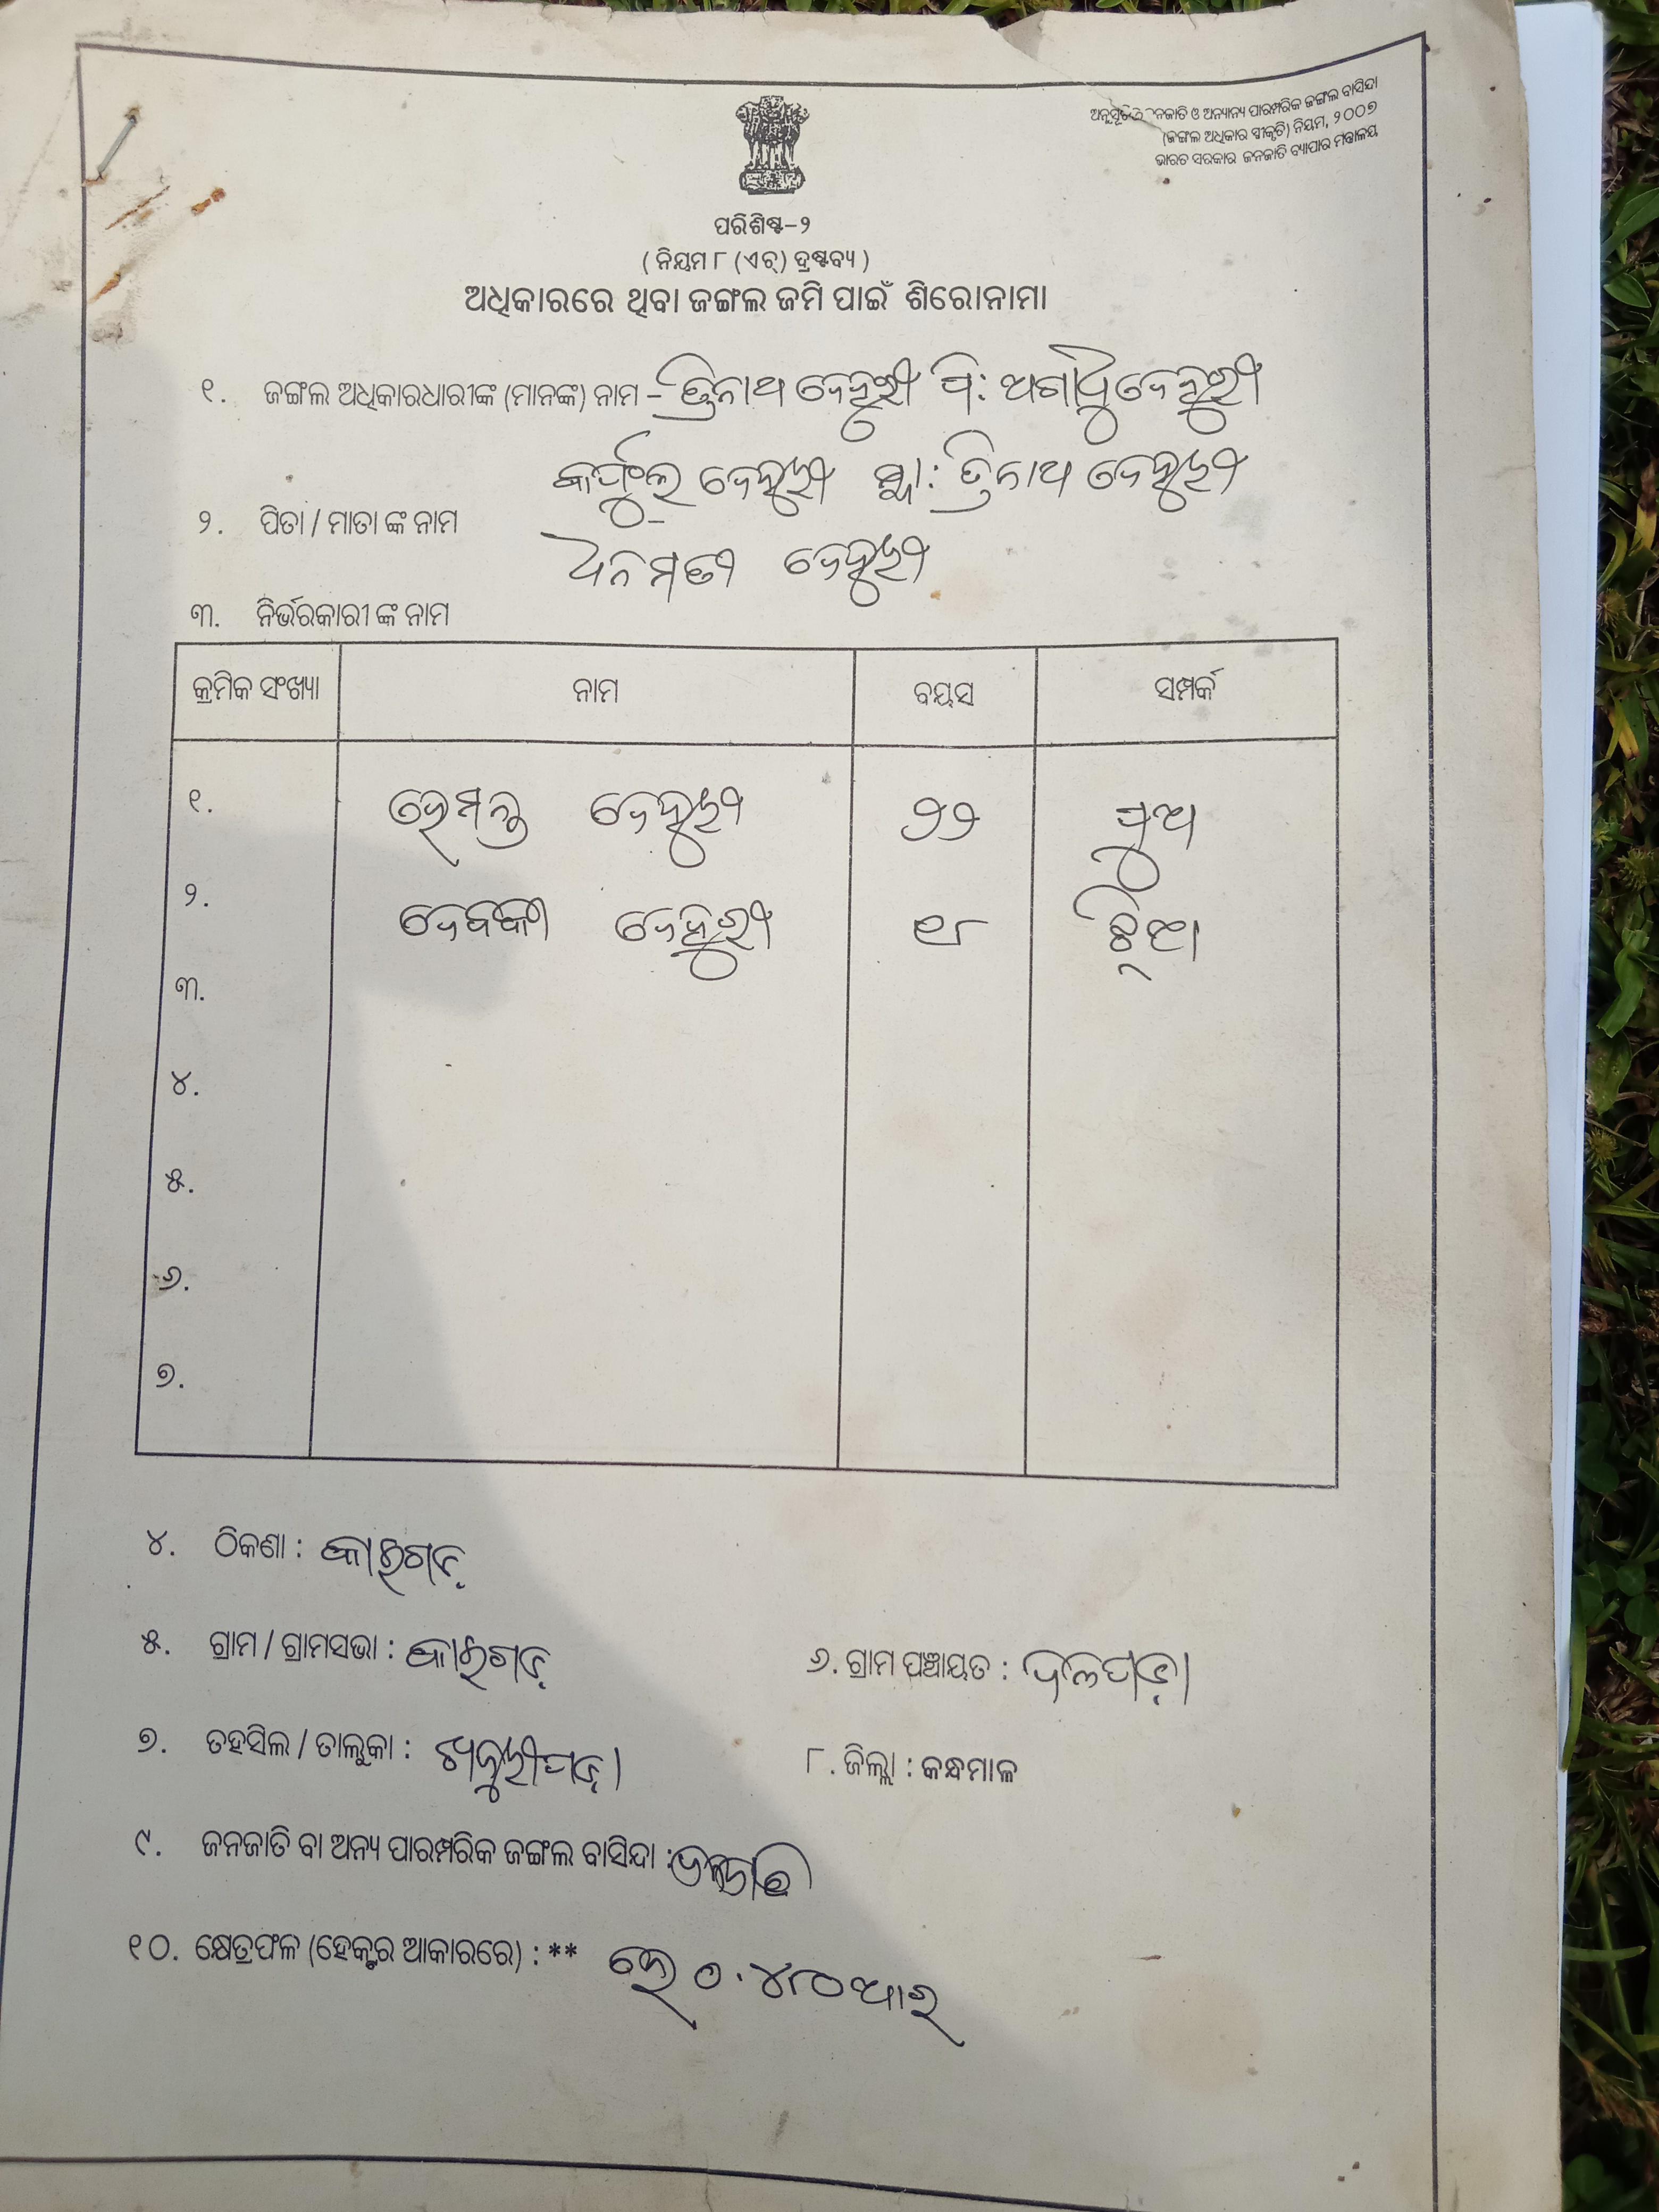 ଅନୁସୂଚିତ ଜନଜାତି ଓ ଅନ୍ୟାନ୍ୟ ପାରମ୍ପରିକ ଜଙ୍ଗଲ ବାସିନ୍ଦା
(ଜଙ୍ଗଲ ଅଧିକାର ସ୍ବୀକୃତି) ନିୟମ, ୨୦୦୭
ଭାରତ ସରକାର ଜନଜାତି ବ୍ୟାପାର ମନ୍ତ୍ରାଳୟ
ପରିଶିଷ୍ଟ–୨
( ନିୟମ ୮ (ଏଚ୍) ଦ୍ରଷ୍ଟବ୍ୟ )
ଅଧିକାରରେ ଥିବା ଜଙ୍ଗଲ ଜମି ପାଇଁ ଶିରୋନାମା
୧. ଜଙ୍ଗଲ ଅଧିକାରଧାରୀଙ୍କ (ମାନଙ୍କ) ନାମ – ତ୍ରିନାଥ ଦେହୁରୀ ପି: ଅଗାଧୁ ଦେହୁରୀ
ଦେହୁରୀ ସ୍ବା: ତ୍ରିନାଥ ଦେହୁରୀ
୨. ପିତା / ମାତା ଙ୍କ ନାମ
ଧନମତୀ ଦେହୁରୀ
୩. ନିର୍ଭରକାରୀ ଙ୍କ ନାମ
କ୍ରମିକ ସଂଖ୍ୟା ନାମ ବୟସ ସମ୍ପର୍କ
୧. ହେମନ୍ତ ଦେହୁରୀ ୨୨ ପୁଅ
୨. ଦେବକୀ ଦେହୁରୀ ୧୮ ଝିଅ
୩.
୪.
୫.
୬.
୭.
୪. ଠିକଣା : କାରଗଡ଼
୫. ଗ୍ରାମ / ଗ୍ରାମସଭା : କାରଗଡ଼ ୬. ଗ୍ରାମ ପଞ୍ଚାୟତ : ଦଳପଡ଼ା
୭. ତହସିଲ / ତାଲୁକା : ଖଜୁରୀପଡ଼ା ୮. ଜିଲ୍ଲା : କନ୍ଧମାଳ
୯. ଜନଜାତି ବା ଅନ୍ୟ ପାରମ୍ପରିକ ଜଙ୍ଗଲ ବାସିନ୍ଦା : ଜନଜାତି
୧୦. କ୍ଷେତ୍ରଫଳ (ହେକ୍ଟର ଆକାରରେ) : ** ହେ ୦.୪୮୦ ଆର